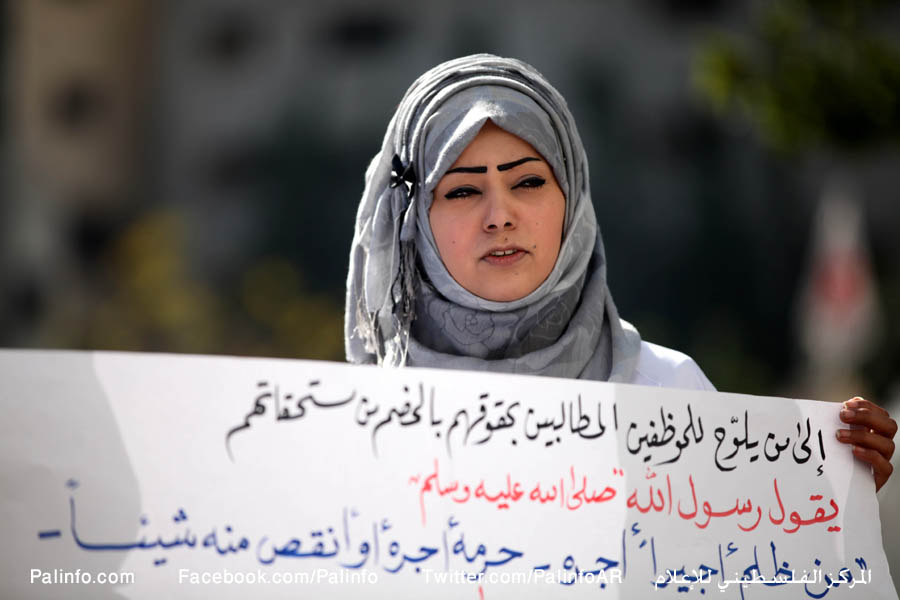 إلى من يلوّح للموظفين المطالبين بحقوقهم بالخصم من مستحقاتهم
يقول رسول الله "صلى الله عليه وسلم"
"من ظلم أجيراً أجره - حرمه أجره أو أنقص منه شيئاً -
Palinfo.com Facebook.com/Palinfo Twitter.com/PalinfoAR المركز الفلسطيني للإعلام